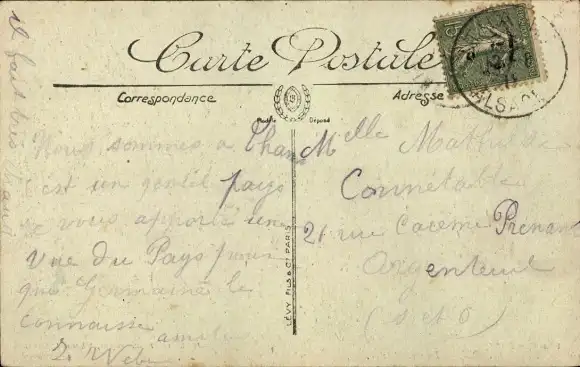 Carte Postale
Correspondance
Adresse
Modèle Déposé
LÉVY FILS & Cie PARIS
ALSACE
il fait très chaud
Nous sommes à Thann
c'est un gentil pays
je vous apporte une
vue du Pays pour
que Germaine le
connaisse
amitiés
Melle Mathilde
Connétable
21 rue Prénant
Argenteuil
(S et O)